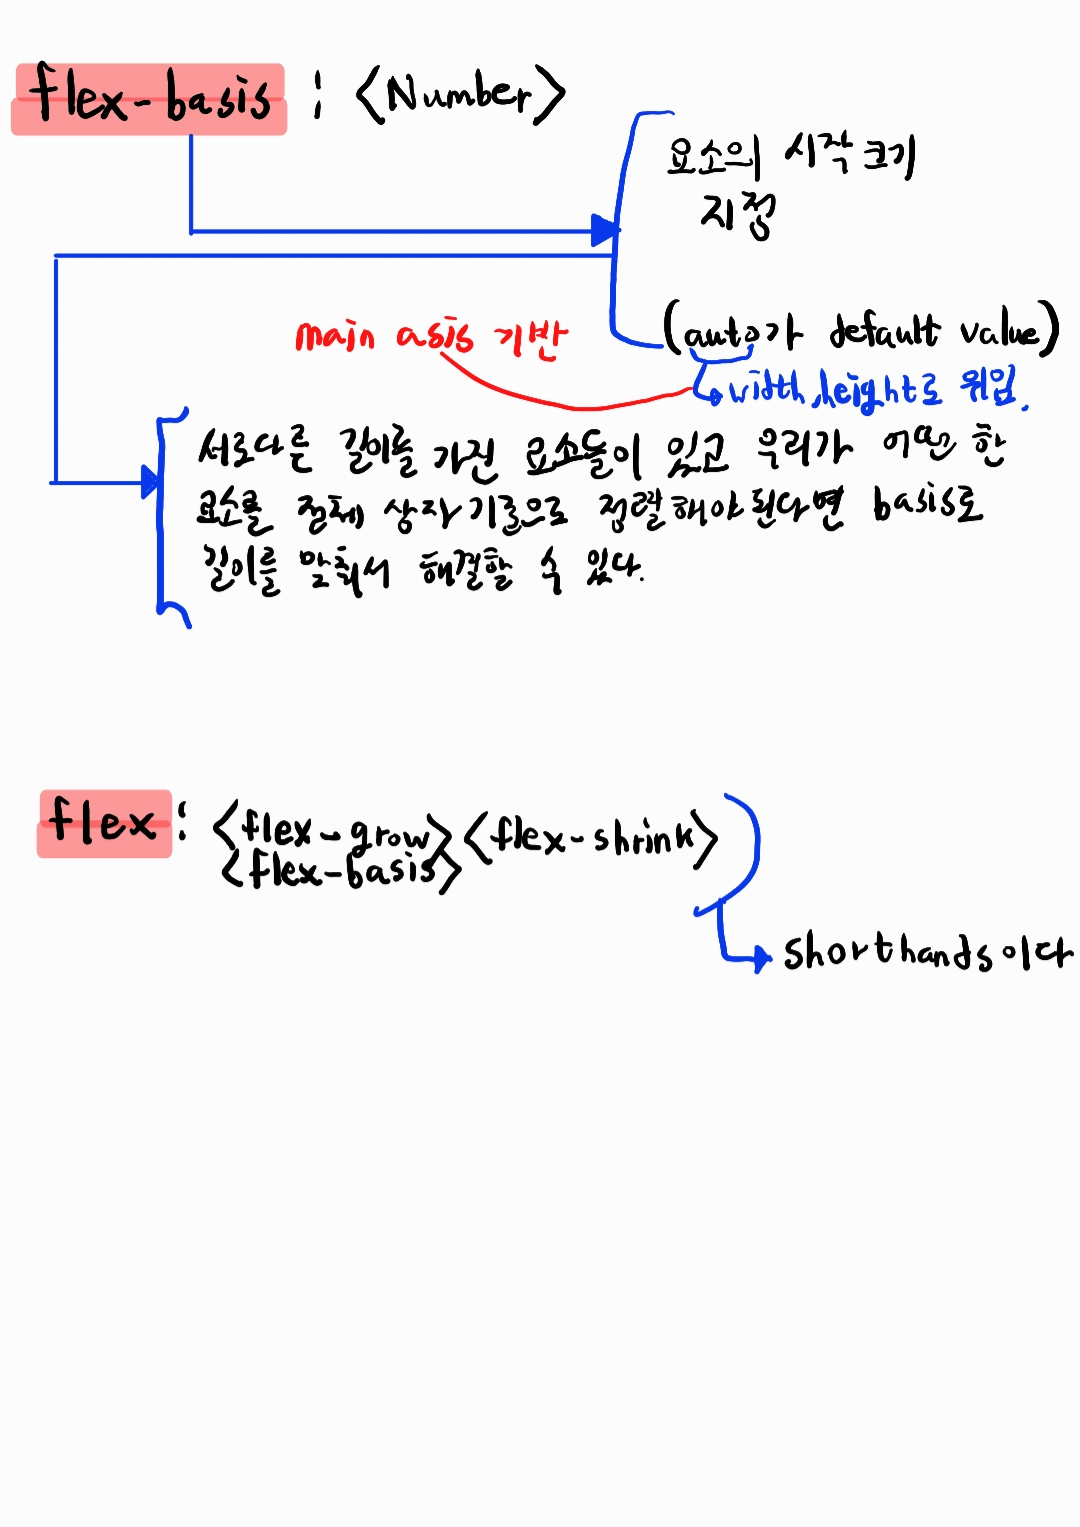 flex-basis : <Number>
요소의 시작 크기
지정
(auto가 default value)
main asis 기반
width, height로 위임.
서로다른 길이를 가진 요소들이 있고 우리가 어떤 한
요소를 전체 상자 기준으로 정렬해야 된다면 basis로
길이를 맞춰서 해결할 수 있다.
flex : <flex-grow> <flex-shrink>
<flex-basis>
shorthands이다